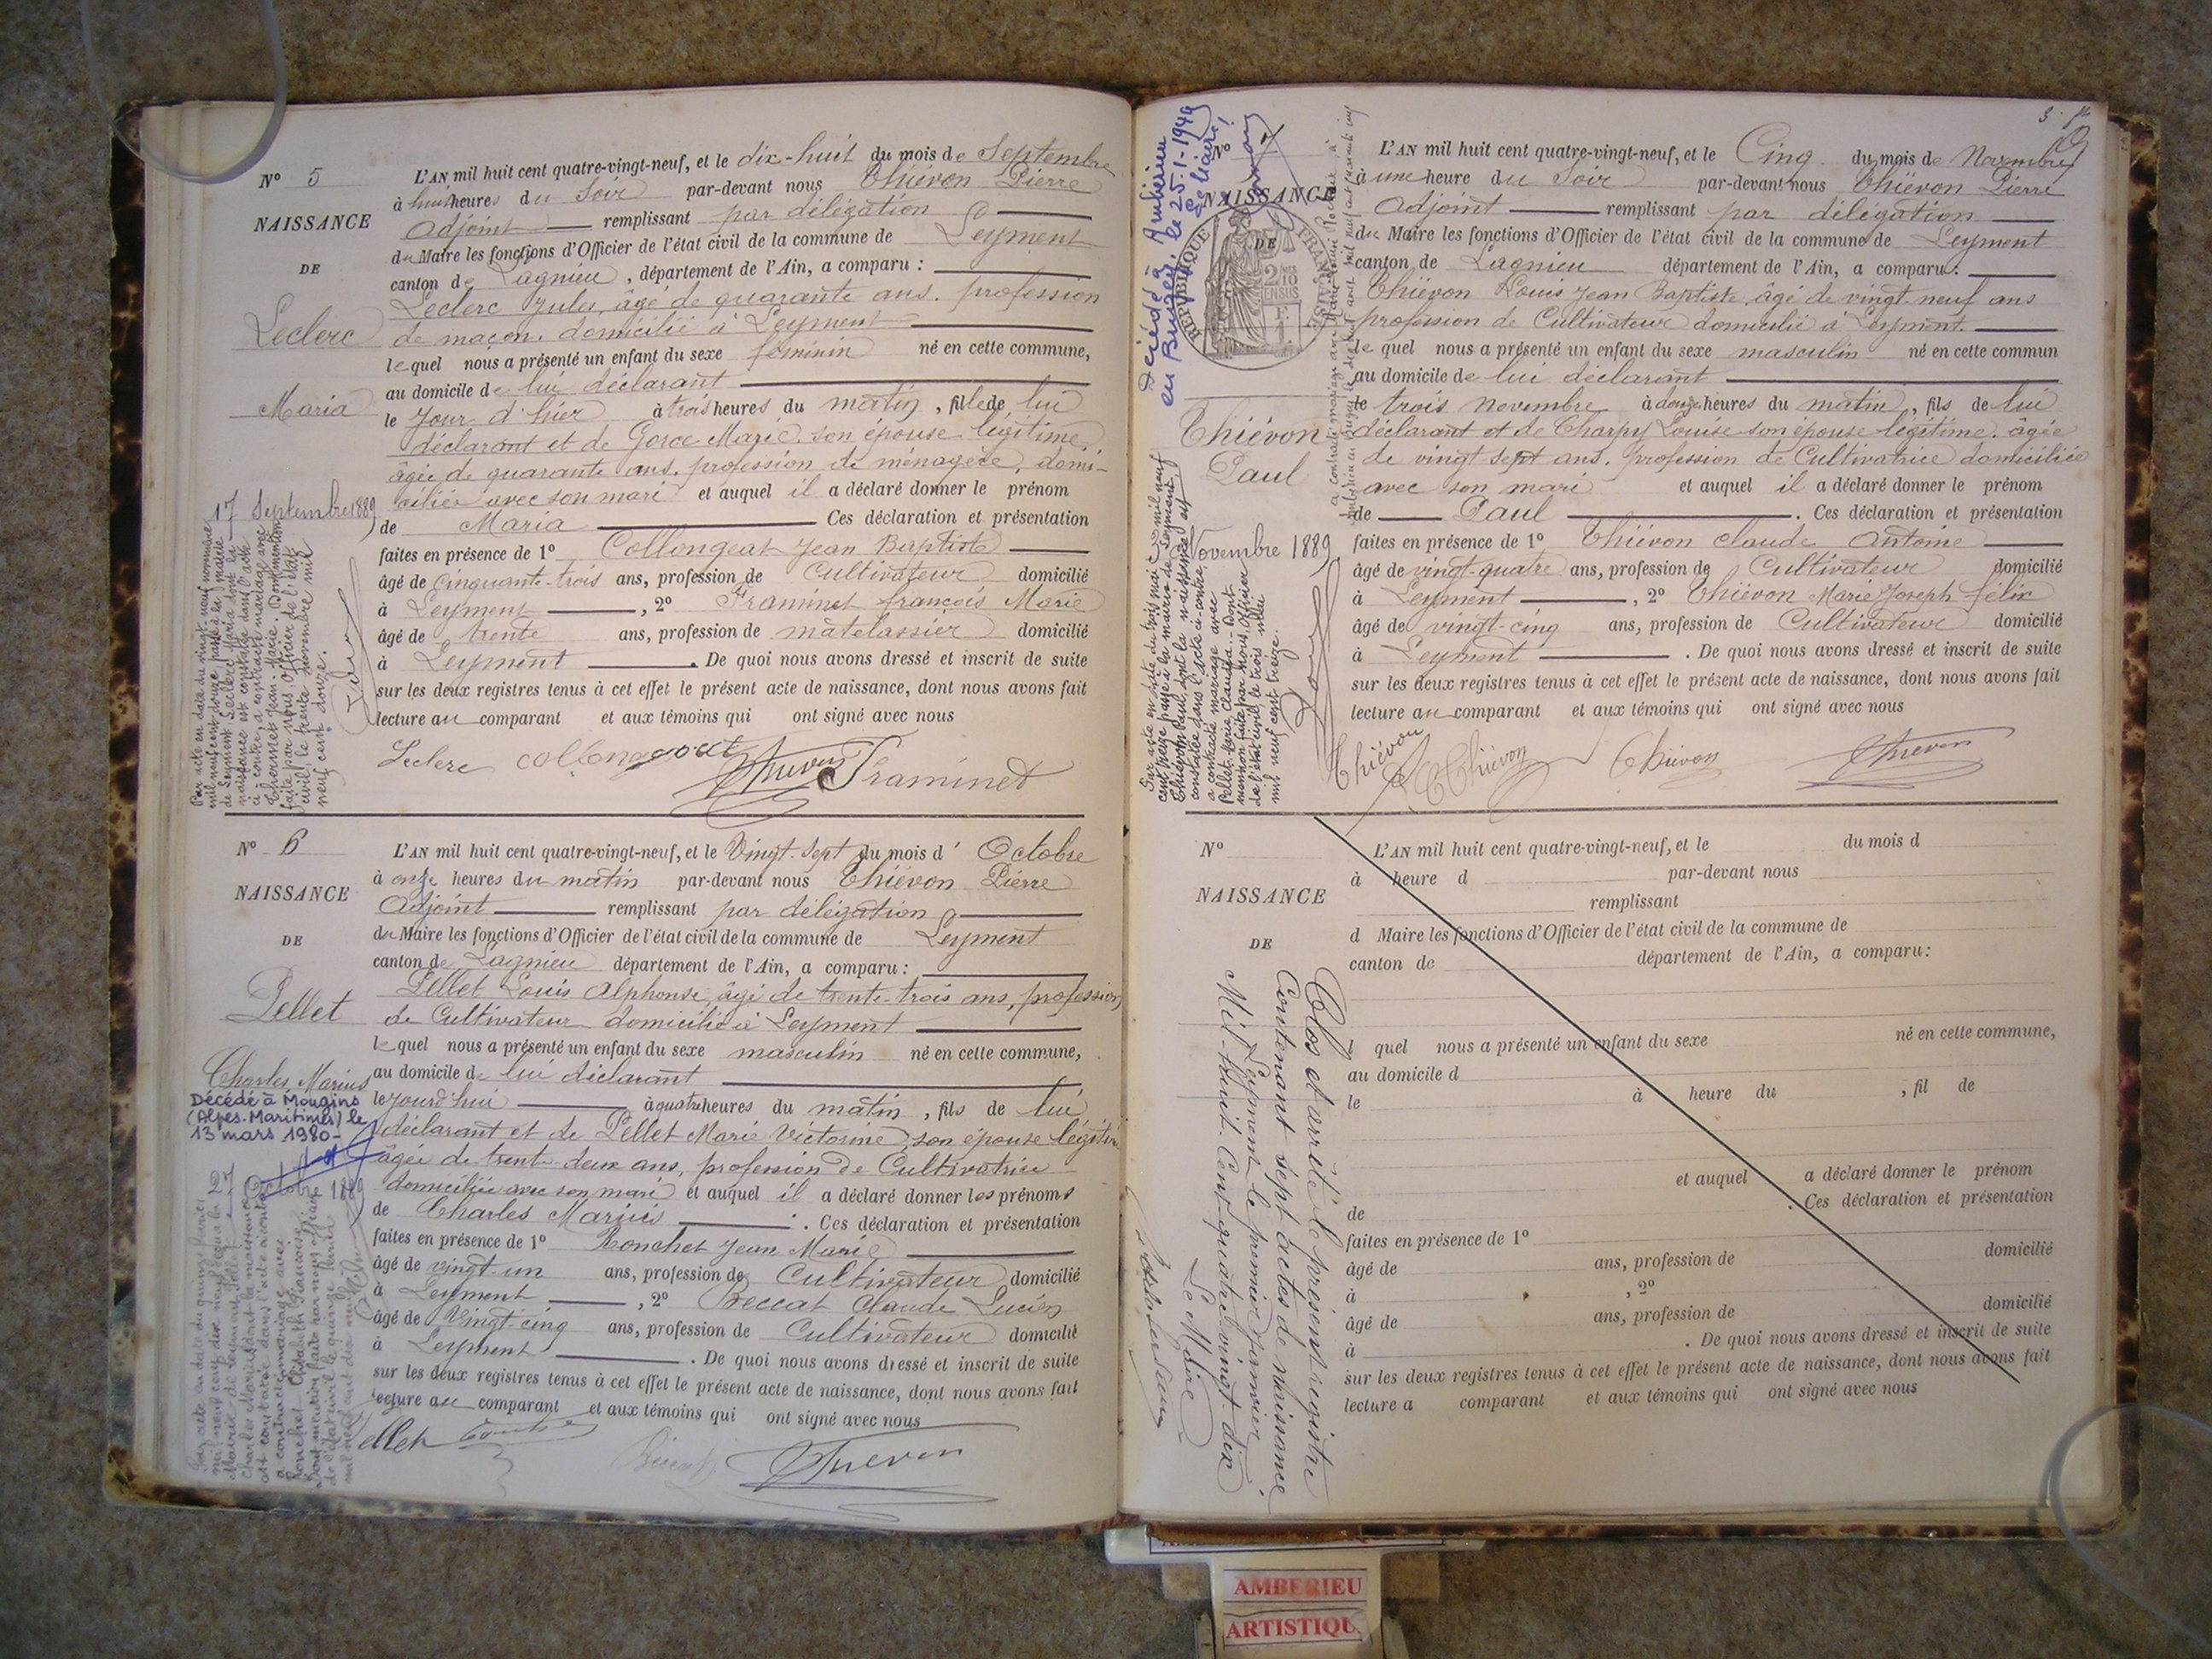 Nº 5
NAISSANCE
DE
Leclerc
Maria
17 Septembre 1889
L'AN mil huit cent quatre-vingt-neuf, et le dix-huit du mois de Septembre
à huit heures du Soir par-devant nous Thiévon Pierre
Adjoint remplissant par délégation
du Maire les fonctions d'Officier de l'état civil de la commune de Leyment
canton de Lagnieu, département de l'Ain, a comparu :
Leclerc Jules, âgé de quarante ans. profession
de maçon. domicilié à Leyment
lequel nous a présenté un enfant du sexe féminin né en cette commune,
au domicile de lui déclarant
le Jour d'hier à trois heures du matin, fille de lui
déclarant et de Gorce Marie. son épouse légitime,
âgée de quarante ans. profession de ménagère, domi-
ciliée avec son mari et auquel il a déclaré donner le prénom
de Maria Ces déclaration et présentation
faites en présence de 1º Collongeat Jean Baptiste
âgé de cinquante-trois ans, profession de Cultivateur domicilié
à Leyment, 2º Traminet françois Marie
âgé de trente ans, profession de matelassier domicilié
à Leyment. De quoi nous avons dressé et inscrit de suite
sur les deux registres tenus à cet effet le présent acte de naissance, dont nous avons fait
lecture au comparant et aux témoins qui ont signé avec nous
Leclerc Collongeat Thievon Traminet
Par acte en date du vingt-neuf novembre
mil neuf cent douze passé à la mairie
de Leyment Leclerc Maria dont la
naissance est constatée dans l'acte
ci-contre, a contracté mariage avec
Thermet Jean-Marie. Dont mention
faite par nous officier de l'état
civil, le trente novembre mil
neuf cent douze.
Nº 6
NAISSANCE
DE
Pellet
Charles Marius
Décédé à Mougins
(Alpes-Maritimes) le
13 mars 1980-
27
Octobre 1889
L'AN mil huit cent quatre-vingt-neuf, et le Vingt-Sept du mois d' Octobre
à onze heures du matin par-devant nous Thiévon Pierre
Adjoint remplissant par délégation
du Maire les fonctions d'Officier de l'état civil de la commune de Leyment
canton de Lagnieu département de l'Ain, a comparu :
Pellet Louis Alphonse, âgé de trente-trois ans, profession
de Cultivateur domicilié à Leyment
lequel nous a présenté un enfant du sexe masculin né en cette commune,
au domicile de lui déclarant
le jourd'hui à quatre heures du matin, fils de lui
déclarant et de Pellet Marie Victorine, son épouse légitime
âgée de trente-deux ans, profession de Cultivatrice
domiciliée avec son mari et auquel il a déclaré donner les prénoms
de Charles Marius. Ces déclaration et présentation
faites en présence de 1º Ronchet Jean Marie
âgé de vingt-un ans, profession de Cultivateur domicilié
à Leyment, 2º Breccat Claude Lucien
âgé de Vingt-cinq ans, profession de Cultivateur domicilié
à Leyment. De quoi nous avons dressé et inscrit de suite
sur les deux registres tenus à cet effet le présent acte de naissance, dont nous avons fait
lecture au comparant et aux témoins qui ont signé avec nous
Pellet Thievon
Nº 7
NAISSANCE
DE
RÉPUBLIQUE FRANÇAISE
Décédé à Ambérieu
en Bugey, le 25-1-1949
Thiévon
Paul
Novembre 1889
L'AN mil huit cent quatre-vingt-neuf, et le Cinq du mois de Novembre
à une heure du Soir par-devant nous Thiévon Pierre
Adjoint remplissant par délégation
du Maire les fonctions d'Officier de l'état civil de la commune de Leyment
canton de Lagnieu département de l'Ain, a comparu :
Thiévon Louis Jean Baptiste, âgé de vingt-neuf ans
profession de Cultivateur domicilié à Leyment.
le quel nous a présenté un enfant du sexe masculin né en cette commun
au domicile de lui déclarant
le trois Novembre à onze heures du matin, fils de lui
déclarant et de Charpy Louise son épouse légitime. âgée
de vingt sept ans. profession de Cultivatrice domiciliée
avec son mari et auquel il a déclaré donner le prénom
de Paul. Ces déclaration et présentation
faites en présence de 1º Thiévon Claude Antoine
âgé de vingt-quatre ans, profession de Cultivateur domicilié
à Leyment, 2º Thiévon Marie Joseph félix
âgé de vingt-cinq ans, profession de Cultivateur domicilié
à Leyment. De quoi nous avons dressé et inscrit de suite
sur les deux registres tenus à cet effet le présent acte de naissance, dont nous avons fait
lecture au comparant et aux témoins qui ont signé avec nous
Thiévon Thiévon Thievon Thievon
Nº
NAISSANCE
DE
L'AN mil huit cent quatre-vingt-neuf, et le du mois d
à heure d par-devant nous
remplissant
d Maire les fonctions d'Officier de l'état civil de la commune de
canton de département de l'Ain, a comparu :
quel nous a présenté un enfant du sexe né en cette commune,
au domicile d
le à heure du , fil de
et auquel a déclaré donner le prénom
de . Ces déclaration et présentation
faites en présence de 1º
âgé de ans, profession de domicilié
à , 2º
âgé de ans, profession de domicilié
à . De quoi nous avons dressé et inscrit de suite
sur les deux registres tenus à cet effet le présent acte de naissance, dont nous avons fait
lecture a comparant et aux témoins qui ont signé avec nous
Clos et arrêté le présent registre
Contenant sept actes de naissance.
Leyment le premier Janvier
Mil-huit-Cent quatre vingt-dix
Le Maire
AMBERIEU
ARTISTIQU